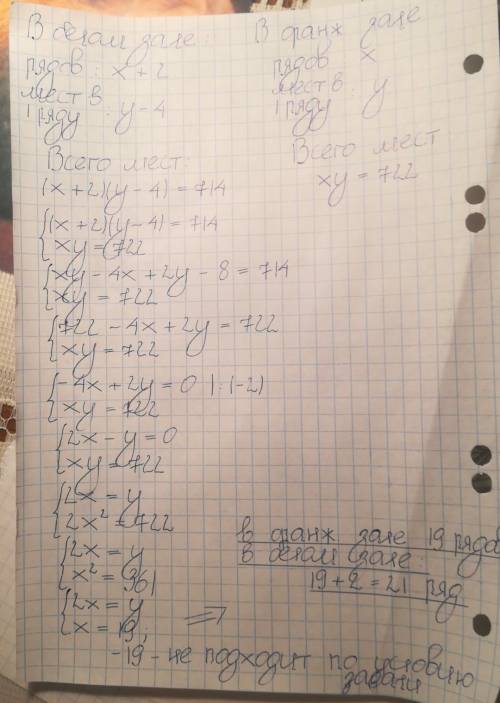 В белом зале:
рядов: x + 2
мест в
1 ряду: y - 4
Всего мест:
(x + 2)(y - 4) = 714
В оранж зале
рядов x
мест в
1 ряду: y
Всего мест
xy = 722
(x + 2)(y - 4) = 714
xy = 722
xy - 4x + 2y - 8 = 714
xy = 722
722 - 4x + 2y = 722
xy = 722
-4x + 2y = 0 | : (-2)
xy = 722
2x - y = 0
xy = 722
2x = y
2x² = 722
2x = y
x² = 361
2x = y
x = 19;
-19 - не подходит по условию
задачи
⇒
в оранж зале 19 рядов
в белом зале
19 + 2 = 21 ряд